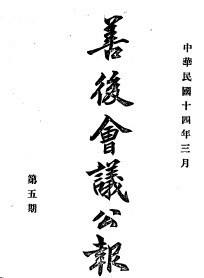 中華民國十四年三月
善後會議公報
第五期